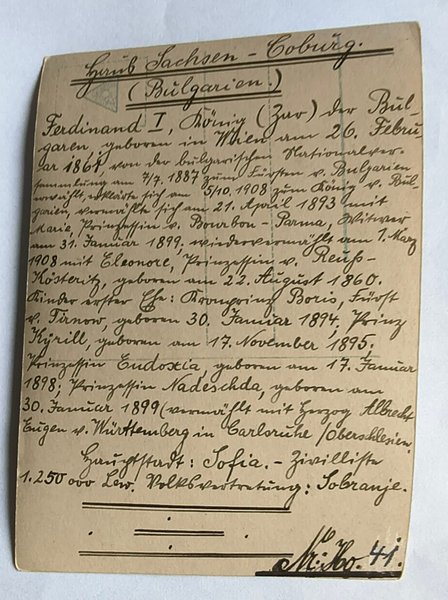 Haus Sachsen-Coburg.
(Bulgarien.)
Ferdinand I, König (Zar) der Bul-
garen, geboren in Wien am 26. Febru-
ar 1861, von der bulgarischen Nationalver-
sammlung am 7/7. 1887 zum Fürsten v. Bulgarien
erwählt, erklärte sich am 5/10. 1908 zum König v. Bul-
garien, vermählte sich am 21. April 1893 mit
Marie, Prinzessin v. Bourbon-Parma, Witwer
am 31. Januar 1899, wiedervermählt am 1. März
1908 mit Eleonore, Prinzessin v. Reuß-
Köstritz, geboren am 22. August 1860.
Kinder erster Ehe: Kronprinz Boris, Fürst
v. Tirnow, geboren 30. Januar 1894, Prinz
Kyrill, geboren am 17. November 1895.
Prinzessin Eudoxia, geboren am 17. Januar
1898; Prinzessin Nadeschda, geboren am
30. Januar 1899 (vermählt mit Herzog Albrecht
Eugen v. Württemberg in Carlsruhe/Oberschlesien.
Hauptstadt: Sofia. - Zivilliste
1.250 000 Lew. Volksvertretung: Sobranje.
41.